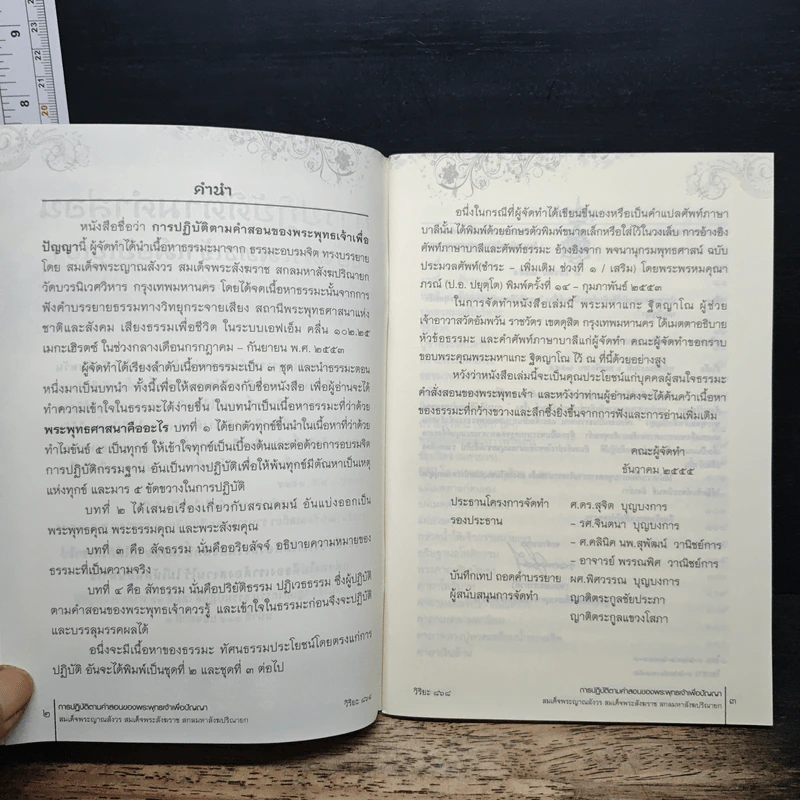 8
9
20
21
22
23
คำนำ
หนังสือชื่อว่า การปฏิบัติตามคำสอนของพระพุทธเจ้าเพื่อ
ปัญญานี้ ผู้จัดทำได้นำเนื้อหาธรรมะมาจาก ธรรมะอบรมจิต ทรงบรรยาย
โดย สมเด็จพระญาณสังวร สมเด็จพระสังฆราช สกลมหาสังฆปริณายก
วัดบวรนิเวศวิหาร กรุงเทพมหานคร โดยได้จดเนื้อหาธรรมะนั้นจากการ
ฟังคำบรรยายธรรมทางวิทยุกระจายเสียง สถานีพระพุทธศาสนาแห่ง
ชาติและสังคม เสียงธรรมเพื่อชีวิต ในระบบเอฟเอ็ม คลื่น ๑๐๒.๒๕
เมกะเฮิรตซ์ ในช่วงกลางเดือนกรกฎาคม – กันยายน พ.ศ. ๒๕๕๓
ผู้จัดทำได้เรียงลำดับเนื้อหาธรรมะเป็น ๓ ชุด และนำธรรมะตอน
หนึ่งมาเป็นบทนำ ทั้งนี้เพื่อให้สอดคล้องกับชื่อหนังสือ เพื่อผู้อ่านจะได้
ทำความเข้าใจในธรรมะได้ง่ายขึ้น ในบทนำเป็นเนื้อหาธรรมะที่ว่าด้วย
พระพุทธศาสนาคืออะไร บทที่ ๑ ได้ยกตัวทุกข์ขึ้นนำในเนื้อหาที่ว่าด้วย
ทำไมขันธ์ ๕ เป็นทุกข์ ให้เข้าใจทุกข์เป็นเบื้องต้นและต่อด้วยการอบรมจิต
การปฏิบัติกรรมฐาน อันเป็นทางปฏิบัติเพื่อให้พ้นทุกข์มีตัณหาเป็นเหตุ
แห่งทุกข์ และมาร ๕ ขัดขวางในการปฏิบัติ
บทที่ ๒ ได้เสนอเรื่องเกี่ยวกับสรณคมน์ อันแบ่งออกเป็น
พระพุทธคุณ พระธรรมคุณ และพระสังฆคุณ
บทที่ ๓ คือ สัจธรรม นั่นคืออริยสัจจ์ อธิบายความหมายของ
ธรรมะที่เป็นความจริง
บทที่ ๔ คือ สัทธรรม นั่นคือปริยัติธรรม ปฏิเวธธรรม ซึ่งผู้ปฏิบัติ
ตามคำสอนของพระพุทธเจ้าควรรู้ และเข้าใจในธรรมะก่อนจึงจะปฏิบัติ
และบรรลุมรรคผลได้
อนึ่งจะมีเนื้อหาของธรรมะ ทัศนธรรมประโยชน์โดยตรงแก่การ
ปฏิบัติ อันจะได้พิมพ์เป็นชุดที่ ๒ และชุดที่ ๓ ต่อไป
๒
การปฏิบัติตามคำสอนของพระพุทธเจ้าเพื่อปัญญา
สมเด็จพระญาณสังวร สมเด็จพระสังฆราช สกลมหาสังฆปริณายก
วิริยะ ๘๖๘
อนึ่งในกรณีที่ผู้จัดทำได้เขียนขึ้นเองหรือเป็นคำแปลศัพท์ภาษา
บาลีนั้น ได้พิมพ์ด้วยอักษรตัวพิมพ์ขนาดเล็กหรือใส่ไว้ในวงเล็บ การอ้างอิง
ศัพท์ภาษาบาลีและศัพท์ธรรมะ อ้างอิงจาก พจนานุกรมพุทธศาสน์ ฉบับ
ประมวลศัพท์(ชำระ – เพิ่มเติม ช่วงที่ ๑ / เสริม) โดยพระพรหมคุณา
ภรณ์ (ป.อ. ปยุตฺโต) พิมพ์ครั้งที่ ๑๔ – กุมภาพันธ์ ๒๕๕๓
ในการจัดทำหนังสือเล่มนี้ พระมหาแกะ ฐิตญาโณ ผู้ช่วย
เจ้าอาวาสวัดอัมพวัน ราชวัตร เขตดุสิต กรุงเทพมหานคร ได้เมตตาอธิบาย
หัวข้อธรรมะ และคำศัพท์ภาษาบาลีแก่ผู้จัดทำ คณะผู้จัดทำขอกราบ
ขอบพระคุณพระมหาแกะ ฐิตญาโณ ไว้ ณ ที่นี้ด้วยอย่างสูง
หวังว่าหนังสือเล่มนี้จะเป็นคุณประโยชน์แก่บุคคลผู้สนใจธรรมะ
คำสั่งสอนของพระพุทธเจ้า และหวังว่าท่านผู้อ่านคงจะได้ค้นคว้าเนื้อหา
ของธรรมะที่กว้างขวางและลึกซึ้งยิ่งขึ้นจากการฟังและการอ่านเพิ่มเติม
คณะผู้จัดทำ
ธันวาคม ๒๕๕๕
ประธานโครงการจัดทำ ศ.ดร.สุจิต บุญบงการ
รองประธาน – รศ.จินตนา บุญบงการ
– ศ.คลินิค นพ.สุพัฒน์ วานิชย์การ
– อาจารย์ พรรณพิศ วาณิชย์การ
บันทึกเทป ถอดคำบรรยาย ผศ.พิศวรรณ บุญบงการ
ผู้สนับสนุนการจัดทำ ญาติตระกูลชัยประภา
ญาติตระกูลแขวงโสภา
วิริยะ ๘๖๘
การปฏิบัติตามคำสอนของพระพุทธเจ้าเพื่อปัญญา
สมเด็จพระญาณสังวร สมเด็จพระสังฆราช สกลมหาสังฆปริณายก
๓